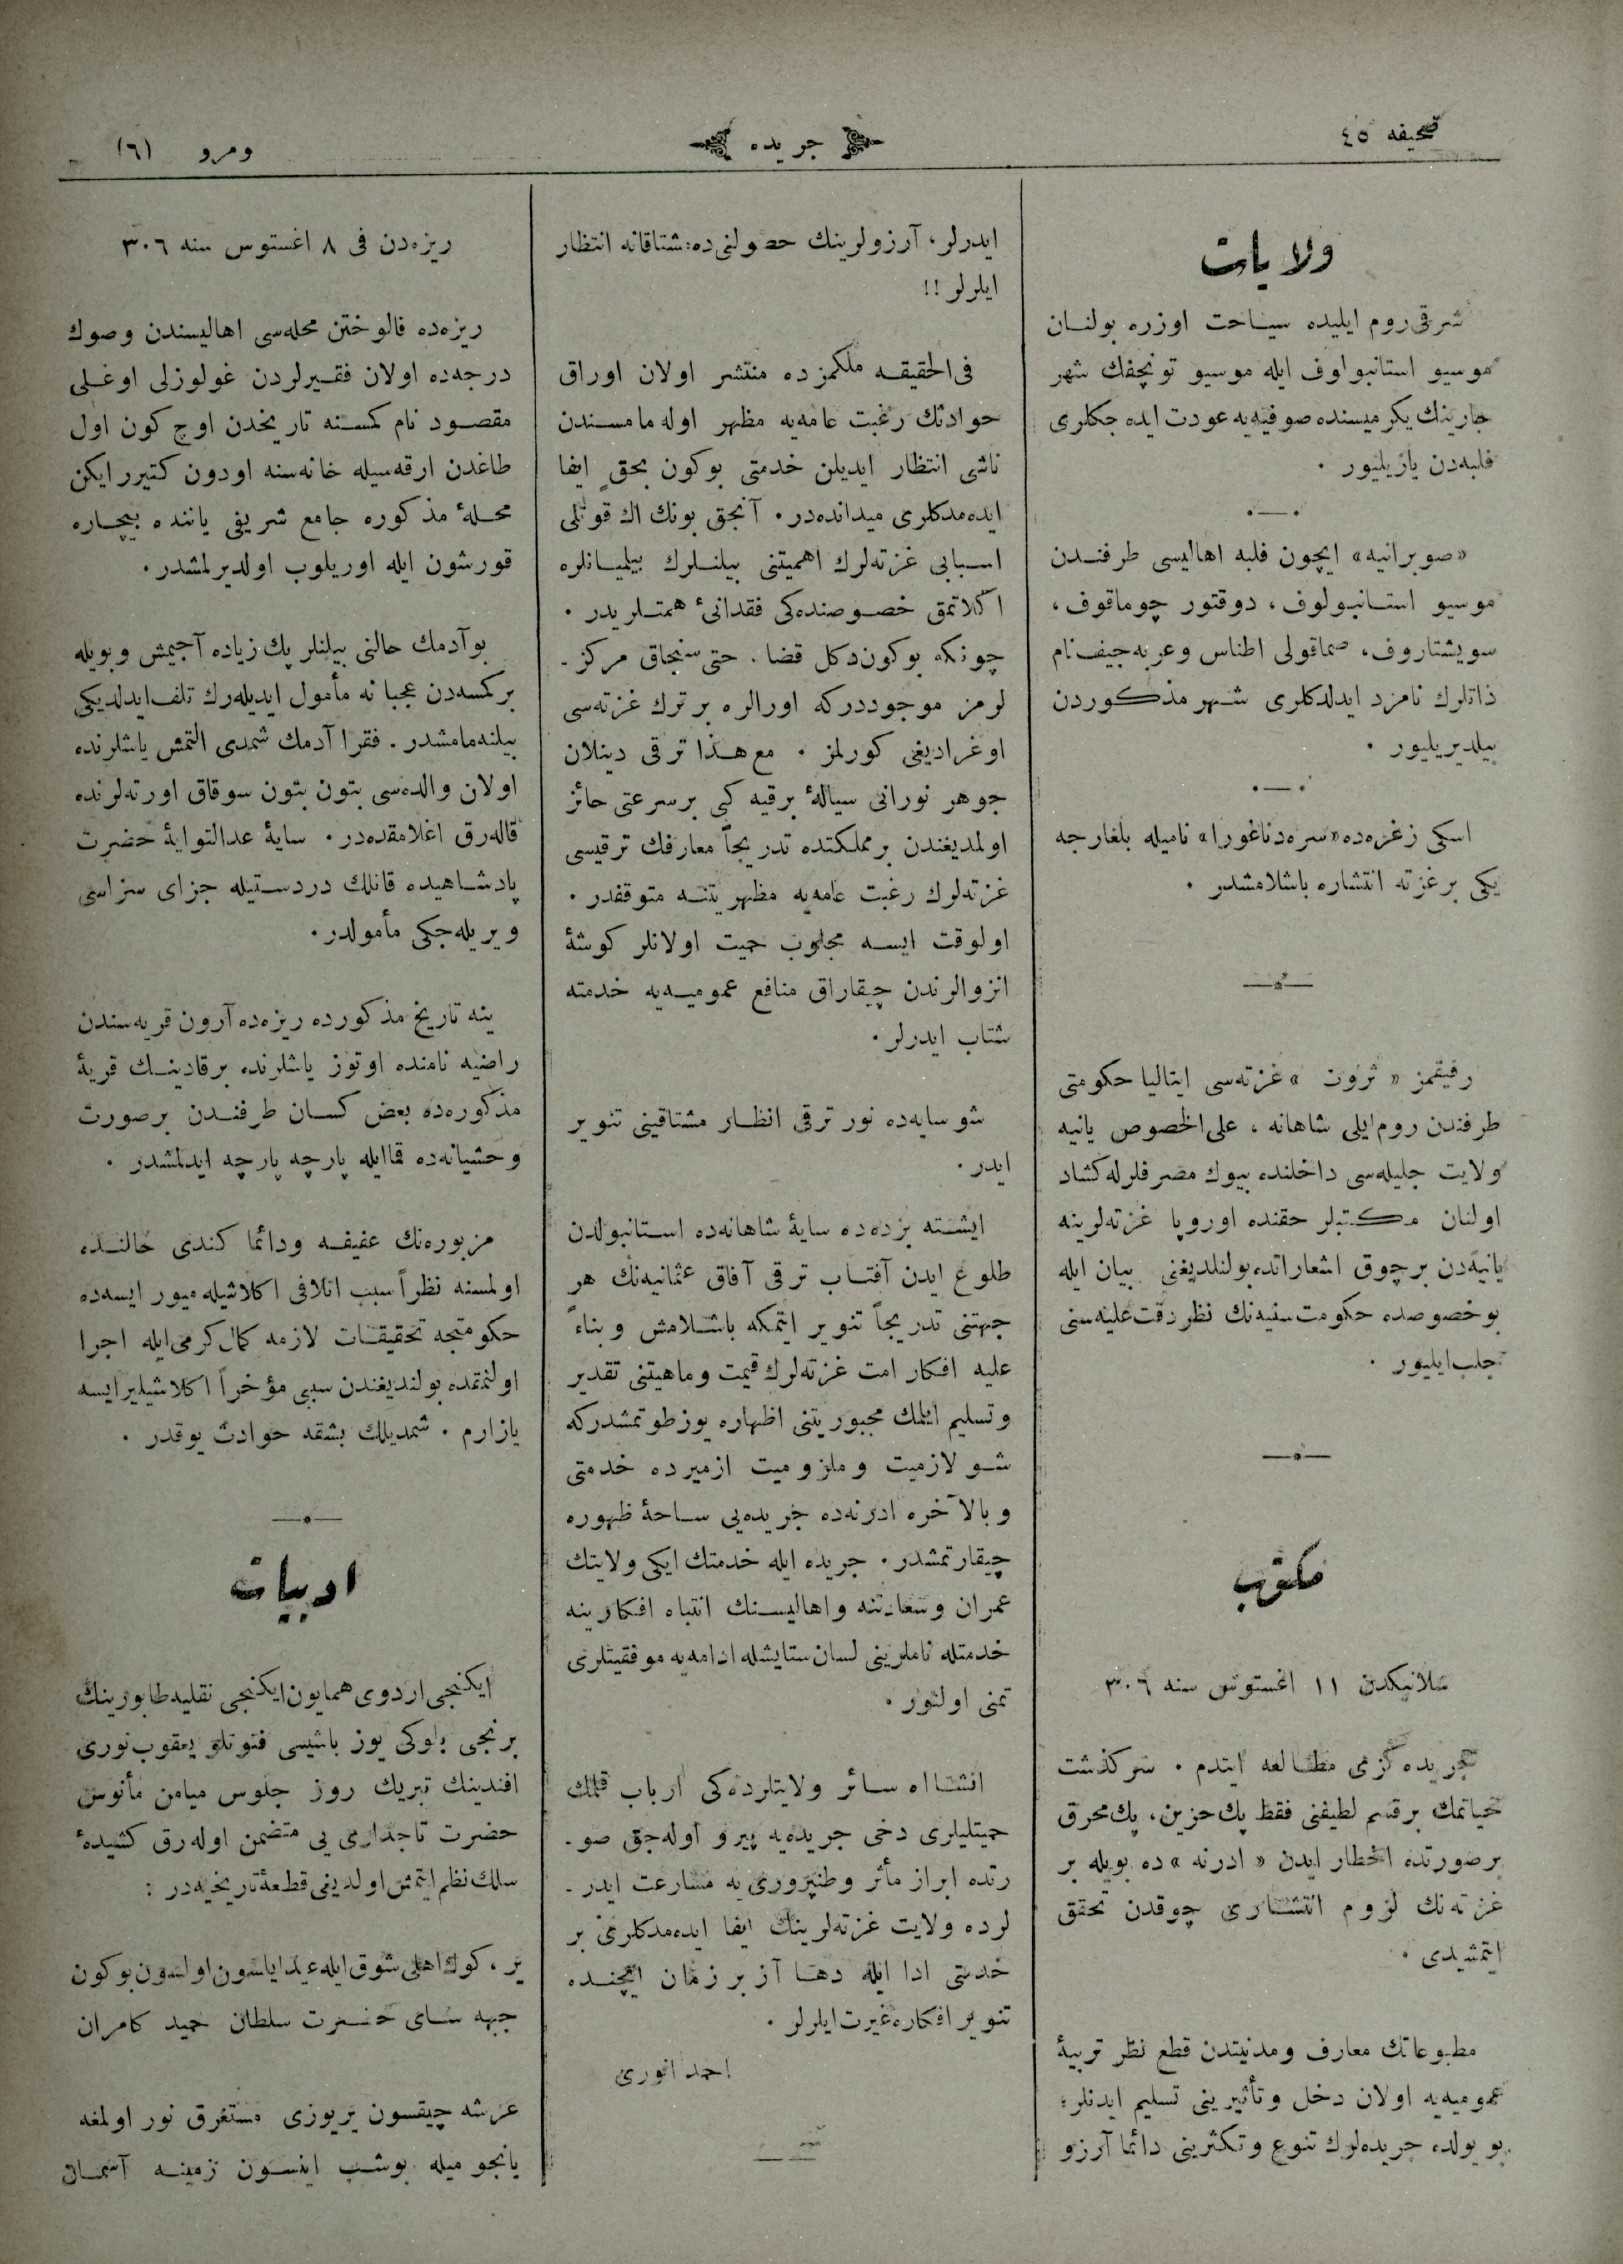 صحیفه ٤٥
جریده
ومرو (٦)
ولایات
شرقی روم ایلیده سیاحت اوزره بولنان
موسیو استانبولوف ایله موسیو تونچفك شهر
جارینك یكرمیسنده صوفیه‌یه عودت ایده جكلری
فلبه‌دن یازیلیور ۰
«صوبرانیه» ایچون فلبه اهالیسی طرفندن
موسیو استانبولوف، دوقتور چوماقوف،
سویشتاروف، صماقولی اطناس وعربه‌جیف نام
ذاتلرك نامزد ایدلدكلری شهر مذكوردن
بیلدیریلیور ۰
اسكی زغره‌ده «سره‌دناغورا» نامیله بلغارجه
یكی بر غزته انتشاره باشلامشدر ۰
رفیقمز « ثروت » غزته‌سی ایتالیا حكومتی
طرفندن روم‌ایلی شاهانه ، علی‌الخصوص یانیه
ولایت جلیله‌سی داخلنده بیوك مصرفلرله كشاد
اولنان مكتبلر حقنده اوروپا غزته‌لرینه
یانیه‌دن برچوق اشعاراتده بولنلدیغنی بیان ایله
بو خصوصده حكومت سنیه‌نك نظر دقت علیه‌سنی
جلب ایلیور ۰
مكتوب
سلانیكدن ١١ اغستوس سنه ٣٠٦
جریده كزی مطالعه ایتدم ۰ سركذشت
حیاتمك برقسم لطیفنی فقط پك حزین، پك محرق
برصورتده اخطار ایدن « ادرنه » ده بویله بر
غزته‌نك لزوم انتشاری چوقدن تحقق
ایتمشیدی ۰
مطبوعاتك معارف ومدنیتدن قطع نظر تربیهٔ
عمومیه‌یه اولان دخل وتأثیرینی تسلیم ایدنلر؛
بو یولده جریده‌لرك تنوع وتكثرینی دائما آرزو
ایدرلر، آرزولرینك حصولنی ده مشتاقانه انتظار
ایلرلر !!
فی‌الحقیقه ملكمزده منتشر اولان اوراق
حوادثك رغبت عامه‌یه مظهر اوله مامسندن
ناشی انتظار ایدیلن خدمتی بوكون بحقٍ ایفا
ایده‌مدكلری میدانده‌در۰ آنجق بونك اك قوتلی
اسبابی غزته‌لرك اهمیتنی بیلنلرك بیلمیانلره
اكلاتمق خصوصنده‌كی فقدانیٔ همتلریدر ۰
چونكه بوكون‌دكل قضا ۰ حتی سنجاق مركز ـ
لرمز موجوددركه اورالره بر ترك غزته‌سی
اوغرادیغی كورلمز ۰ مع هذا ترقی دینلان
جوهر نورانی سیالهٔ برقیه كبی برسرعتی حائز
اولمدیغندن بر مملكتده تدریجاً معارفك ترقیسی
غزته‌لرك رغبت عامه‌یه مظهریتنه متوقفدر ۰
اولوقت ایسه مجلوب حمیت اولانلر كوشهٔ
انزوالرندن چیقاراق منافع عمومیه‌یه خدمته
شتاب ایدرلر ۰
شو سایه‌ده نور ترقی انظار مشتاقینی تنویر
ایدر۰
ایشته بزده‌ده سایهٔ شاهانه‌ده استانبولدن
طلوع ایدن آفتاب ترقی آفاق عثمانیه‌نك هر
جهتنی تدریجاً تنویر ایتمكه باشلامش وبناءً
علیه افكار امت غزته‌لرك قیمت وماهیتنی تقدیر
وتسلیم ایلمك مجبوریتنی اظهاره یوزطوتمشدركه
شو لازمیت وملزومیت ازمیرده خدمتی
وبالآخره ادرنه‌ده جریده‌یی ساحهٔ ظهوره
چیقارتمشدر۰ جریده ایله خدمتك ایكی ولایتك
عمران وسعادتنه واهالیسنك انتباه افكارینه
خدمتله ناملرینی لسان ستایشله ادامه‌یه موفقیتلری
تمنی اولنور ۰
انشااه سائر ولایتلرده‌كی ارباب قلمك
حمیتلیلری دخی جریده‌یه پیرو اوله‌جق صو ـ
رتده ابراز مأثر وطنپروری‌یه مسارعت ایدر ـ
لرده ولایت غزته‌لرینك ایفا ایده‌مدكلری بر
خدمتی ادا ایله دها آز بر زمان ایچنده
تنویر افكاره غیرت ایلرلر ۰
احمد انوری
ریزه‌دن فی ٨ اغستوس سنه ٣٠٦
ریزه‌ده فالوختن محله‌سی اهالیسندن وصوك
درجه‌ده اولان فقیرلردن غولوزلی اوغلی
مقصود نام كمسنه تاریخدن اوچ كون اول
طاغدن ارقه‌سیله خانه‌سنه اودون كتیررایكن
محلهٔ مذكوره جامع شریفی یاننده بیچاره
قورشون ایله اوریلوب اولدیرلمشدر۰
بوآدمك حالنی بیلنلر پك زیاده آجیمش وبویله
بر كمسه‌دن عجبا نه مأمول ایدیله‌رك تلف ایدلدیكی
بیلنه‌مامشدر ۰ فقرا آدمك شمدی التمش یاشلرنده
اولان والده‌سی بتون بتون سوقاق اورته‌لرنده
قاله‌رق اغلامقده‌در۰ سایهٔ عدالتوایهٔ حضرت
پادشاهیده قاتلك دردستیله جزای سزاسی
ویریله‌جكی مأمولدر۰
ینه تاریخ مذكورده ریزه‌ده آرون قریه‌سندن
راضیه نامنده اوتوز یاشلرنده برقادینك قریهٔ
مذكوره‌ده بعض كسان طرفندن برصورت
وحشیانه‌ده قما ایله پارچه پارچه ایدلمشدر ۰
مزبوره‌نك عفیفه ودائما كندی حالنده
اولمسنه نظراً سبب اتلافی اكلاشیله‌میور ایسه‌ده
حكومتجه تحقیقات لازمه كمال كرمی ایله اجرا
اولنمقده بولندیغندن سببی مؤخراً اكلاشیلیرایسه
یازارم ۰ شمدیلك بشقه حوادث یوقدر ۰
ادبیات
ایكنجی اردوی همایون ایكنجی نقلیه طابورینك
برنجی بلوكی یوز باشیسی فتوتلو یعقوب نوری
افندینك تبریك روز جلوس میامن مأنوس
حضرت تاجداری یی متضمن اوله‌رق كشیدهٔ
سلك نظم ایتمش اولدیغی قطعهٔ تاریخیه‌در :
یر ، كوك اهلی شوق ایله عید ایلسون اولسون بوكون
جبهه سای حضرت سلطان حمید كامران
عرشه چیقسون یریوزی مستغرق نور اولمغه
یانجومیله بوشب اینسون زمینه آسمان